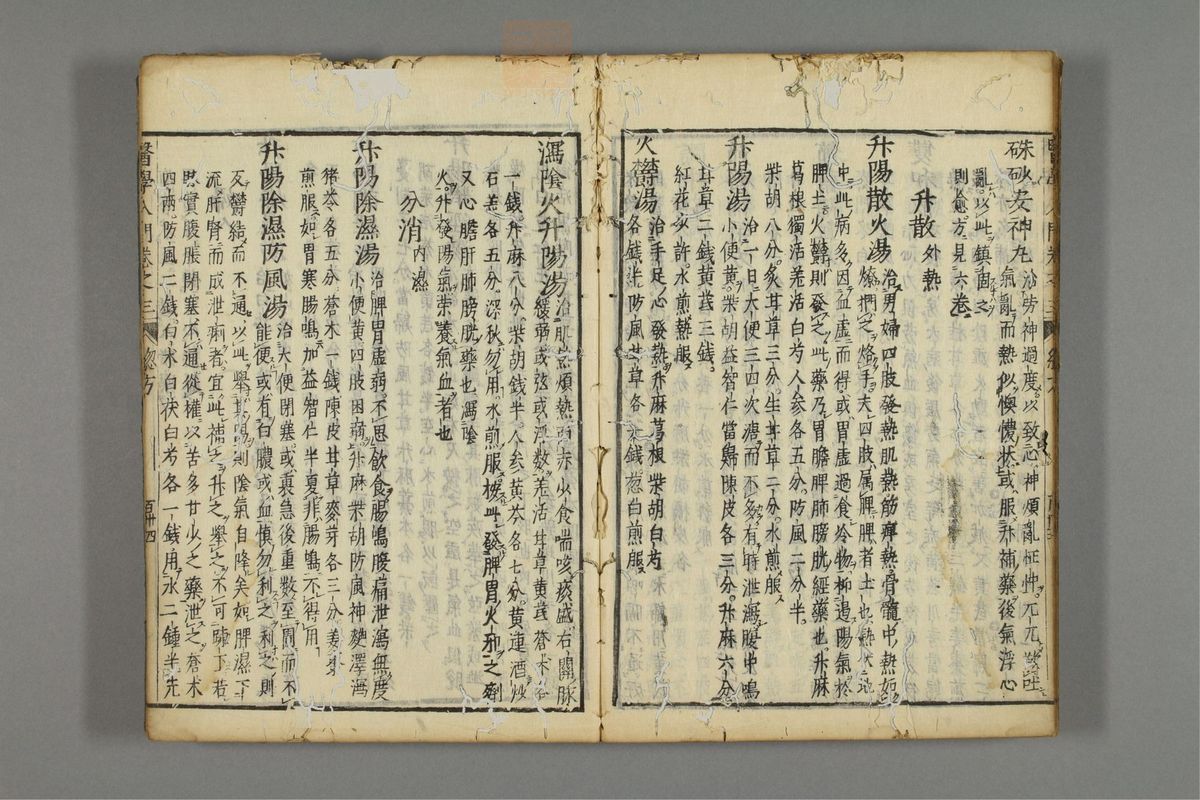 硃砂安神丸 治勞神過度以致心神煩亂怔忡兀兀欲吐
氣亂而熱似懊憹狀或服升補藥後氣浮心
亂以此鎮固之
則愈方見六卷
升散 外熱
升陽散火湯 治男婦四肢發熱肌熱筋痹熱骨髓中熱如
燎捫之烙手夫四肢属脾脾者土也熱伏地
中此病多因血虛而得或胃虛過食冷物抑遏陽氣於
脾土火欝則發之此藥乃胃膽脾肺膀胱經藥也升麻
葛根獨活羌活白芍人参各五分防風二分半
柴胡八分炙甘草三分生甘草二分水煎服
升陽湯 治一日大便三四次溏而不多有時泄瀉腹中鳴
小便黄柴胡益智仁當歸陳皮各三分升麻六分
甘草二錢黄芪三錢
紅花少許水煎熱服
火欝湯 治手足心發熱升麻葛根柴胡白芍
各一錢半防風甘草各五錢葱白煎服
瀉陰火升陽湯 治肌熱煩熱面赤少食喘咳痰盛右關脉
緩弱或弦或浮數羌活甘草黄芪蒼术各
一錢升麻八分柴胡錢半人参黄芩各七分黄連酒炒
石羔各五分深秋勿用水煎服按此發脾胃火邪之劑
又心膽肝肺膀胱藥也瀉陰
火升發陽氣荣養氣血者也
分消 内濕
升陽除濕湯 治脾胃虛弱不思飲食腸鳴腹痛泄瀉無度
小便黄四肢困弱升麻柴胡防風神麯澤瀉
猪苓各五分蒼术一錢陳皮甘草麥芽各三分姜棗
煎服如胃寒腸鳴加益智仁半夏非腸鳴不得用
升陽除濕防風湯 治大便閉塞或裏急後重数至圊而不
能便或有白膿或血慎勿利之利之則
反欝結而不通以此舉其陽則陰氣自降矣如脾濕下
流肝腎而成泄痢者宜此補之升之舉之不可踈下若
脾實腹脹閉塞不通從權以苦多甘少之藥泄之蒼术
四兩防風二錢白术白茯白芍各一錢用水二鍾半先
醫學入門卷之三 總方 百卅四